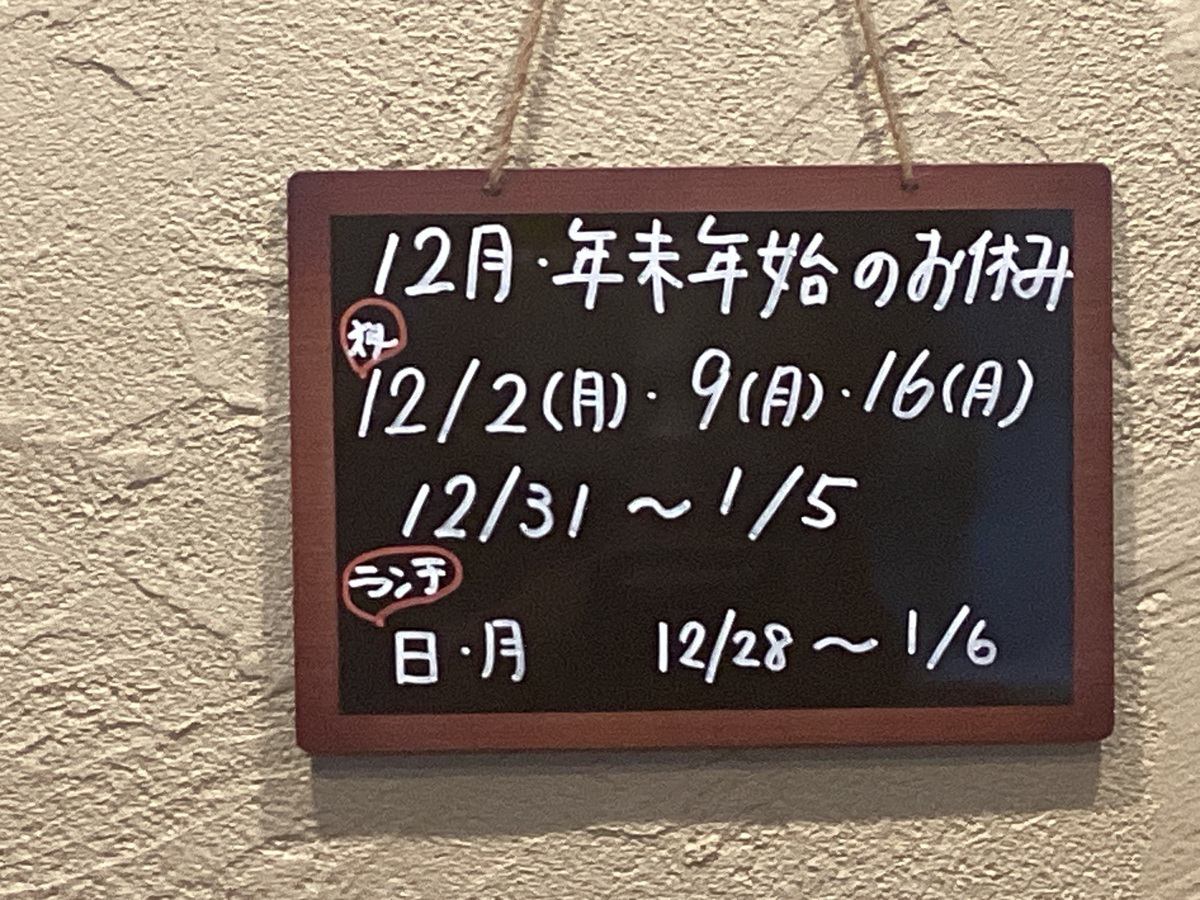 12月・年末年始のお休み
12/2(月)・9(月)・16(月)
12/31〜1/5
ランチ
日・月 12/28〜1/6